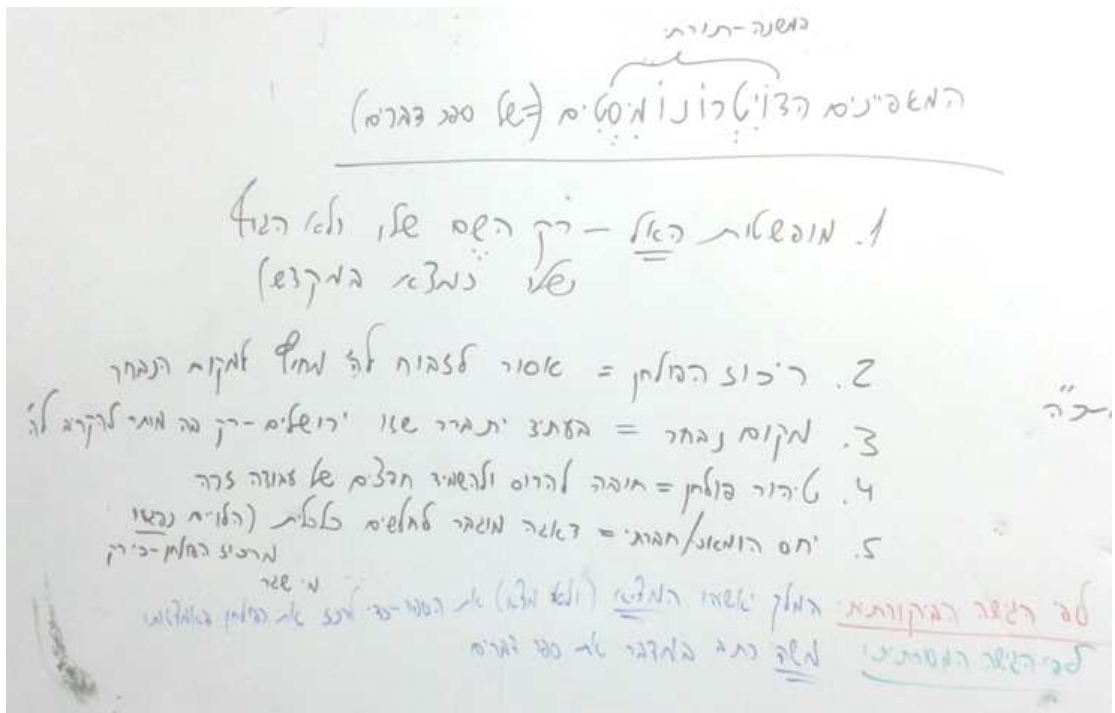 המשנה-תורתי
המאפיינים הדויטרונומיסטים (=של ספר דברים)
1. מופשטות האל - רק השם שלו, ולא הגוף
שלו נמצא במקדש)
2. ריכוז הפולחן = אסור לזבוח לה' מחוץ למקום הנבחר
3. מקום נבחר = בעתיד יתברר שזו ירושלים-רק בה מותר להקריב לה'
4. טיהור פולחן = חובה להרוס ולהשמיד חפצים של עבודה זרה
5. יחס הומאני/חברתי = דאגה מוגברת לחלשים כלכלית (הלויים נפגעו
מריכוז הפולחן-כי רק
מי שגר
לפי הגישה הביקורתית: המלך יאשיהו המציא (ולא מצא) את הספר-כדי לרכז את הפולחן
לפי הגישה המסורתית: משה כתב במדבר את ספר דברים